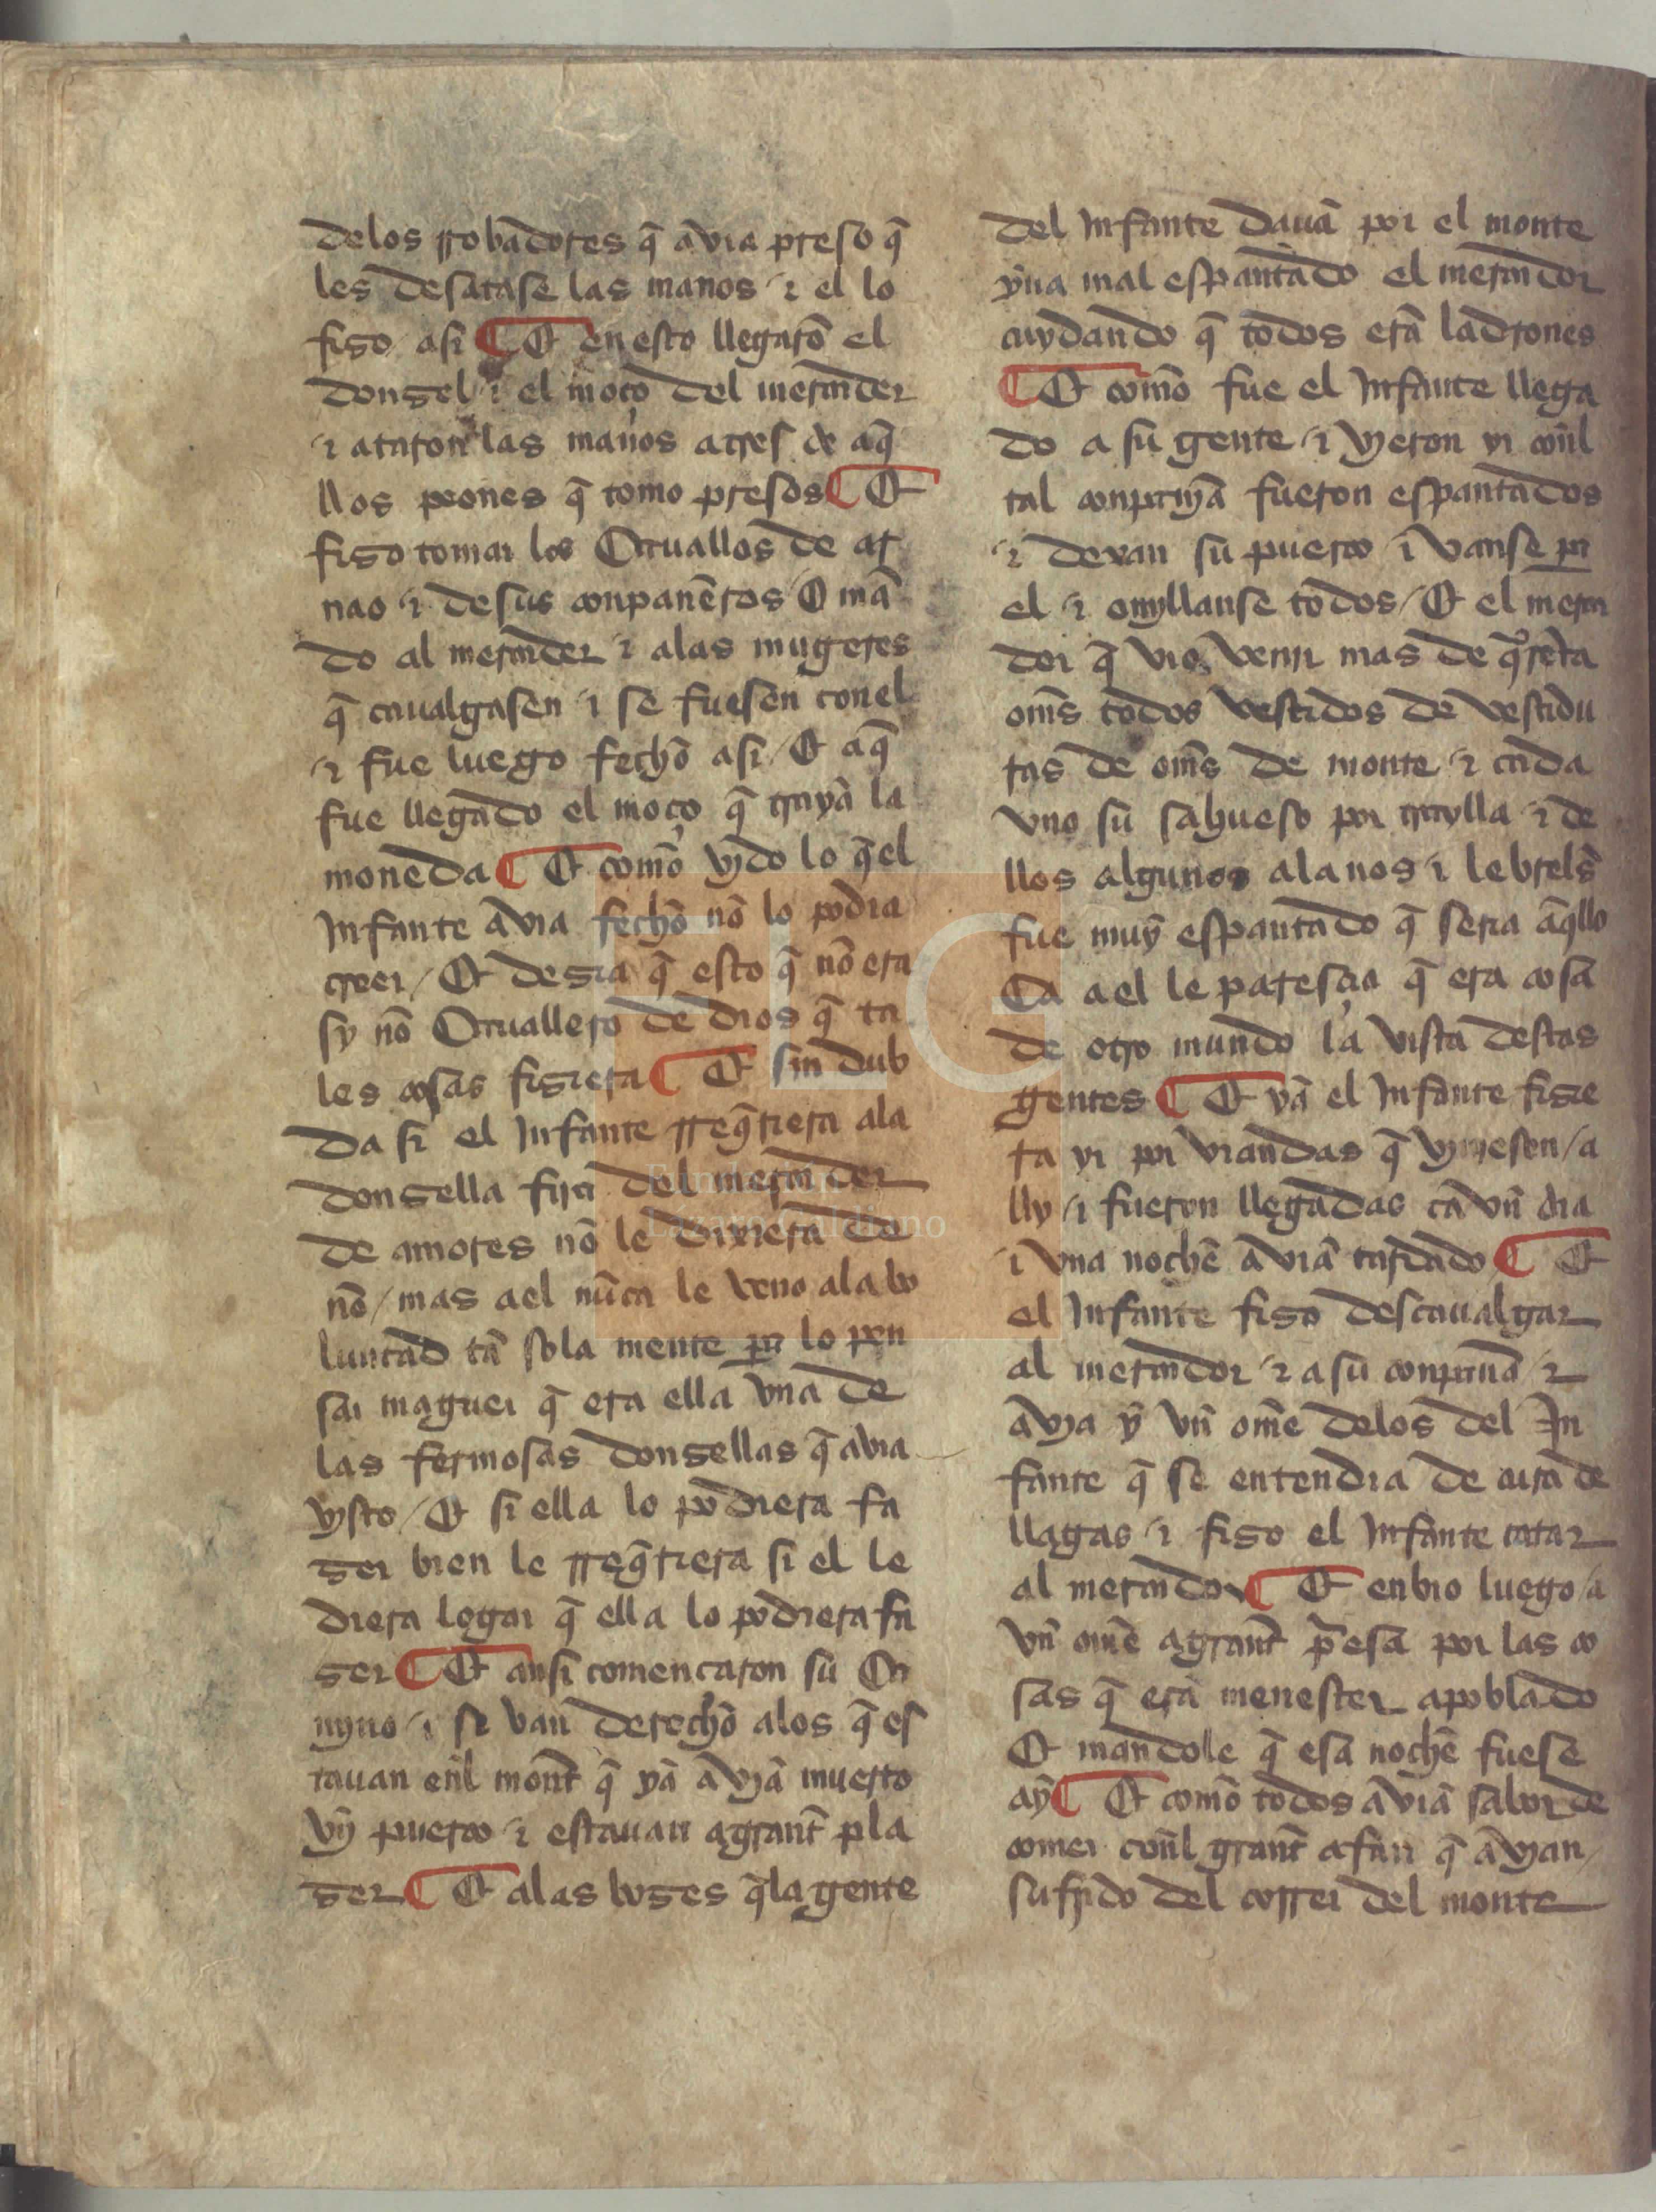 delos rrobadores q̃ avia preso q̃
les desatase las manos ⁊ el lo
fizo asi ¶ Et en esto llegarō el
donzel ⁊ el moço del merchader
⁊ ataron las manos atras de aq̃
llos peones q̃ tomo presos ¶ Et
fizo tomar los Cauallos de ar
nao ⁊ de sus conpanēros / E mā
do al mercader ⁊ alas mugeres
q̃ caualgasen ⁊ se fuesen con el
⁊ fue luego fechō asi / Et aq̃
fue llegado el moço q̃ trayā la
moneda ¶ Et comō vydo lo q̃l
Infante avia fechō nō lo podia
creer / Et dezia q̃ esto q̃ nō era
sy nō Cauallero de dios q̃ ta
les cosas fiziera ¶ Et sin dub
da si el Infante rreq̃riera ala
donzella fija del mercader
de amores nō le dixiera de
nō / mas a el nūca le veno ala vo
luntad tā sola mente pa lo pen
sar maguer q̃ era ella vna de
las fermosas donzellas q̃ avia
vysto / Et si ella lo podiera fa
zer bien le rreq̃riera si el le
diera logar q̃ ella lo podiera fa
zer ¶ Et ansi comencaron su Ca
myno ⁊ se van derechō alos q̃ es
tauan en̄l mont̄ q̃ yā avyā muerto
vȳ puerco ⁊ estauan a grant̄ pla
zer ¶ Et alas bozes q̃ la gente
del Infante dauā por el monte
yua mal espantado el mercador
cuydando q̃ todos erā ladrones
¶ Et comō fue el Infante llega
do a su gente ⁊ vyeron yr con̄l
tal conpanyā fueron espantados
⁊ dexan su puerco ⁊ vanse pa
el ⁊ omyllanse todos / Et el merca
dor q̃ vio venir mas de q̃rēta
om̄s todos vestidos de vestidu
ras de om̄s de monte ⁊ cada
vno su sabueso por traylla ⁊ de
llos algunos alanos ⁊ lebrels̄
fue muȳ espantado q̃ seria aq̃llo
Ca a el le paresçia q̃ era cosa
de otro mundo la vista destas
gentes ¶ Et yā el Infante fizie
ra yr por viandas q̃ vyniesen / a
lly ⁊ fueron llegadas cā vn̄ dia
⁊ vna nochē aviā tardado ¶ Et
el Infante fizo descaualgar
al mercador ⁊ a su conpanā ⁊
avya ȳ vn̄ om̄e delos del In
fante q̃ se entendia de cura de
llagas ⁊ fizo el Infante catar
al mercador ¶ Et enbio luego / a
vn̄ om̄e a grant̄ p̄esa por las co
sas q̃ erā menester a poblado
Et mandole q̃ esa nochē fuese
aȳ ¶ Et comō todos aviā sabor de
comer con̄l grant̄ afan q̃ avyan /
sufrido del correr del monte